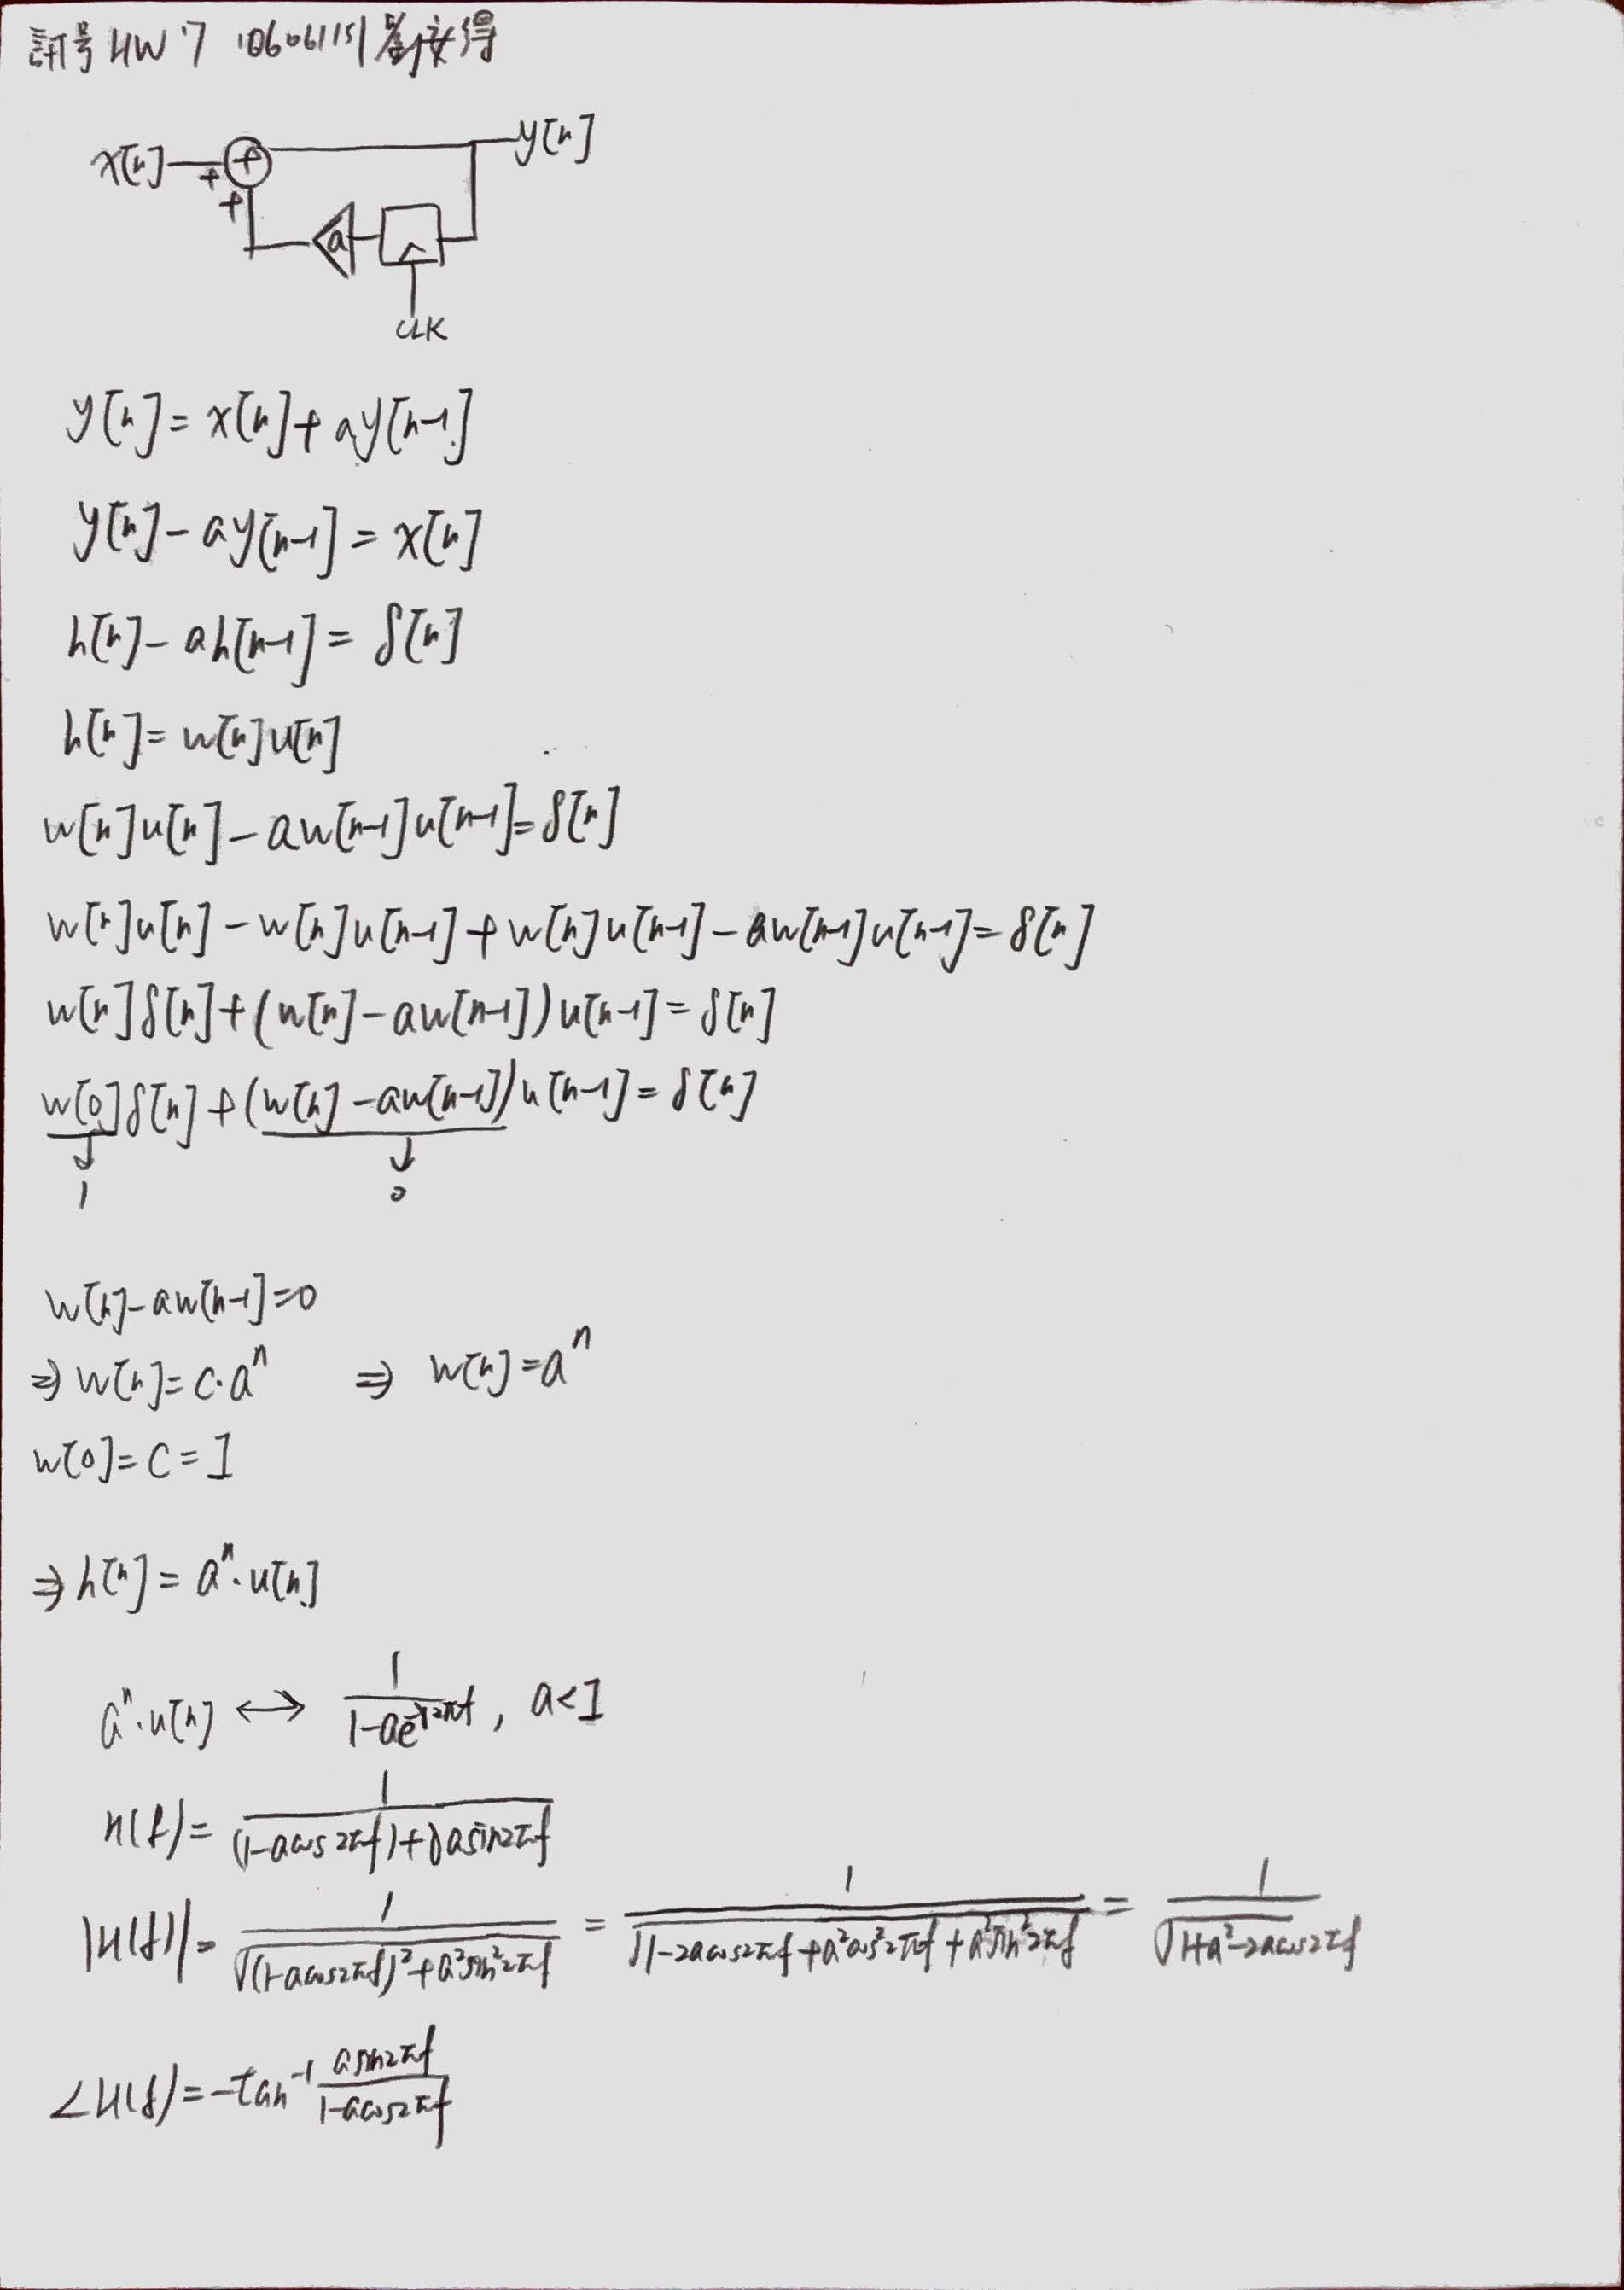 訊号 HW 7 106061151 劉安得
x[n] + + + y[n]
a
CLK
y[n] = x[n] + ay[n-1]
y[n] - ay[n-1] = x[n]
h[n] - ah[n-1] = δ[n]
h[n] = w[n]u[n]
w[n]u[n] - aw[n-1]u[n-1] = δ[n]
w[n]u[n] - w[n]u[n-1] + w[n]u[n-1] - aw[n-1]u[n-1] = δ[n]
w[n]δ[n] + (w[n] - aw[n-1])u[n-1] = δ[n]
w[0]δ[n] + (w[n] - aw[n-1])u[n-1] = δ[n]
↓ ↓
1 0
w[n] - aw[n-1] = 0
⇒ w[n] = c·a^n ⇒ w[n] = a^n
w[0] = c = 1
⇒ h[n] = a^n·u[n]
a^n·u[n] ↔ 1/(1-ae^(-j2πf)), a<1
H(f) = 1/((1-acos2πf)+jasin2πf)
|H(f)| = 1/√((1-acos2πf)²+a²sin²2πf) = 1/√(1-2acos2πf+a²cos²2πf+a²sin²2πf) = 1/√(1+a²-2acos2πf)
∠H(f) = -tan⁻¹ asin2πf/(1-acos2πf)